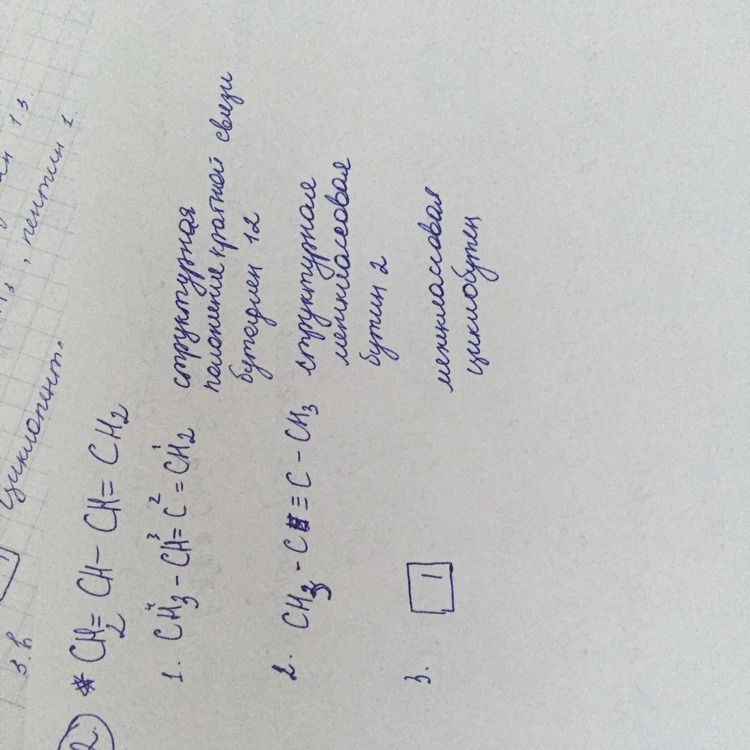 циклопент.
, пентин 1.
13.
2. * CH₂=CH-CH=CH₂
1. C⁴H₃-C³H=C²=C¹H₂ структурная
положение кратной связи
бутадиен 12
2. CH₃-C≡C-CH₃ структурная
межклассовая
бутин 2
3. межклассовая
циклобутен